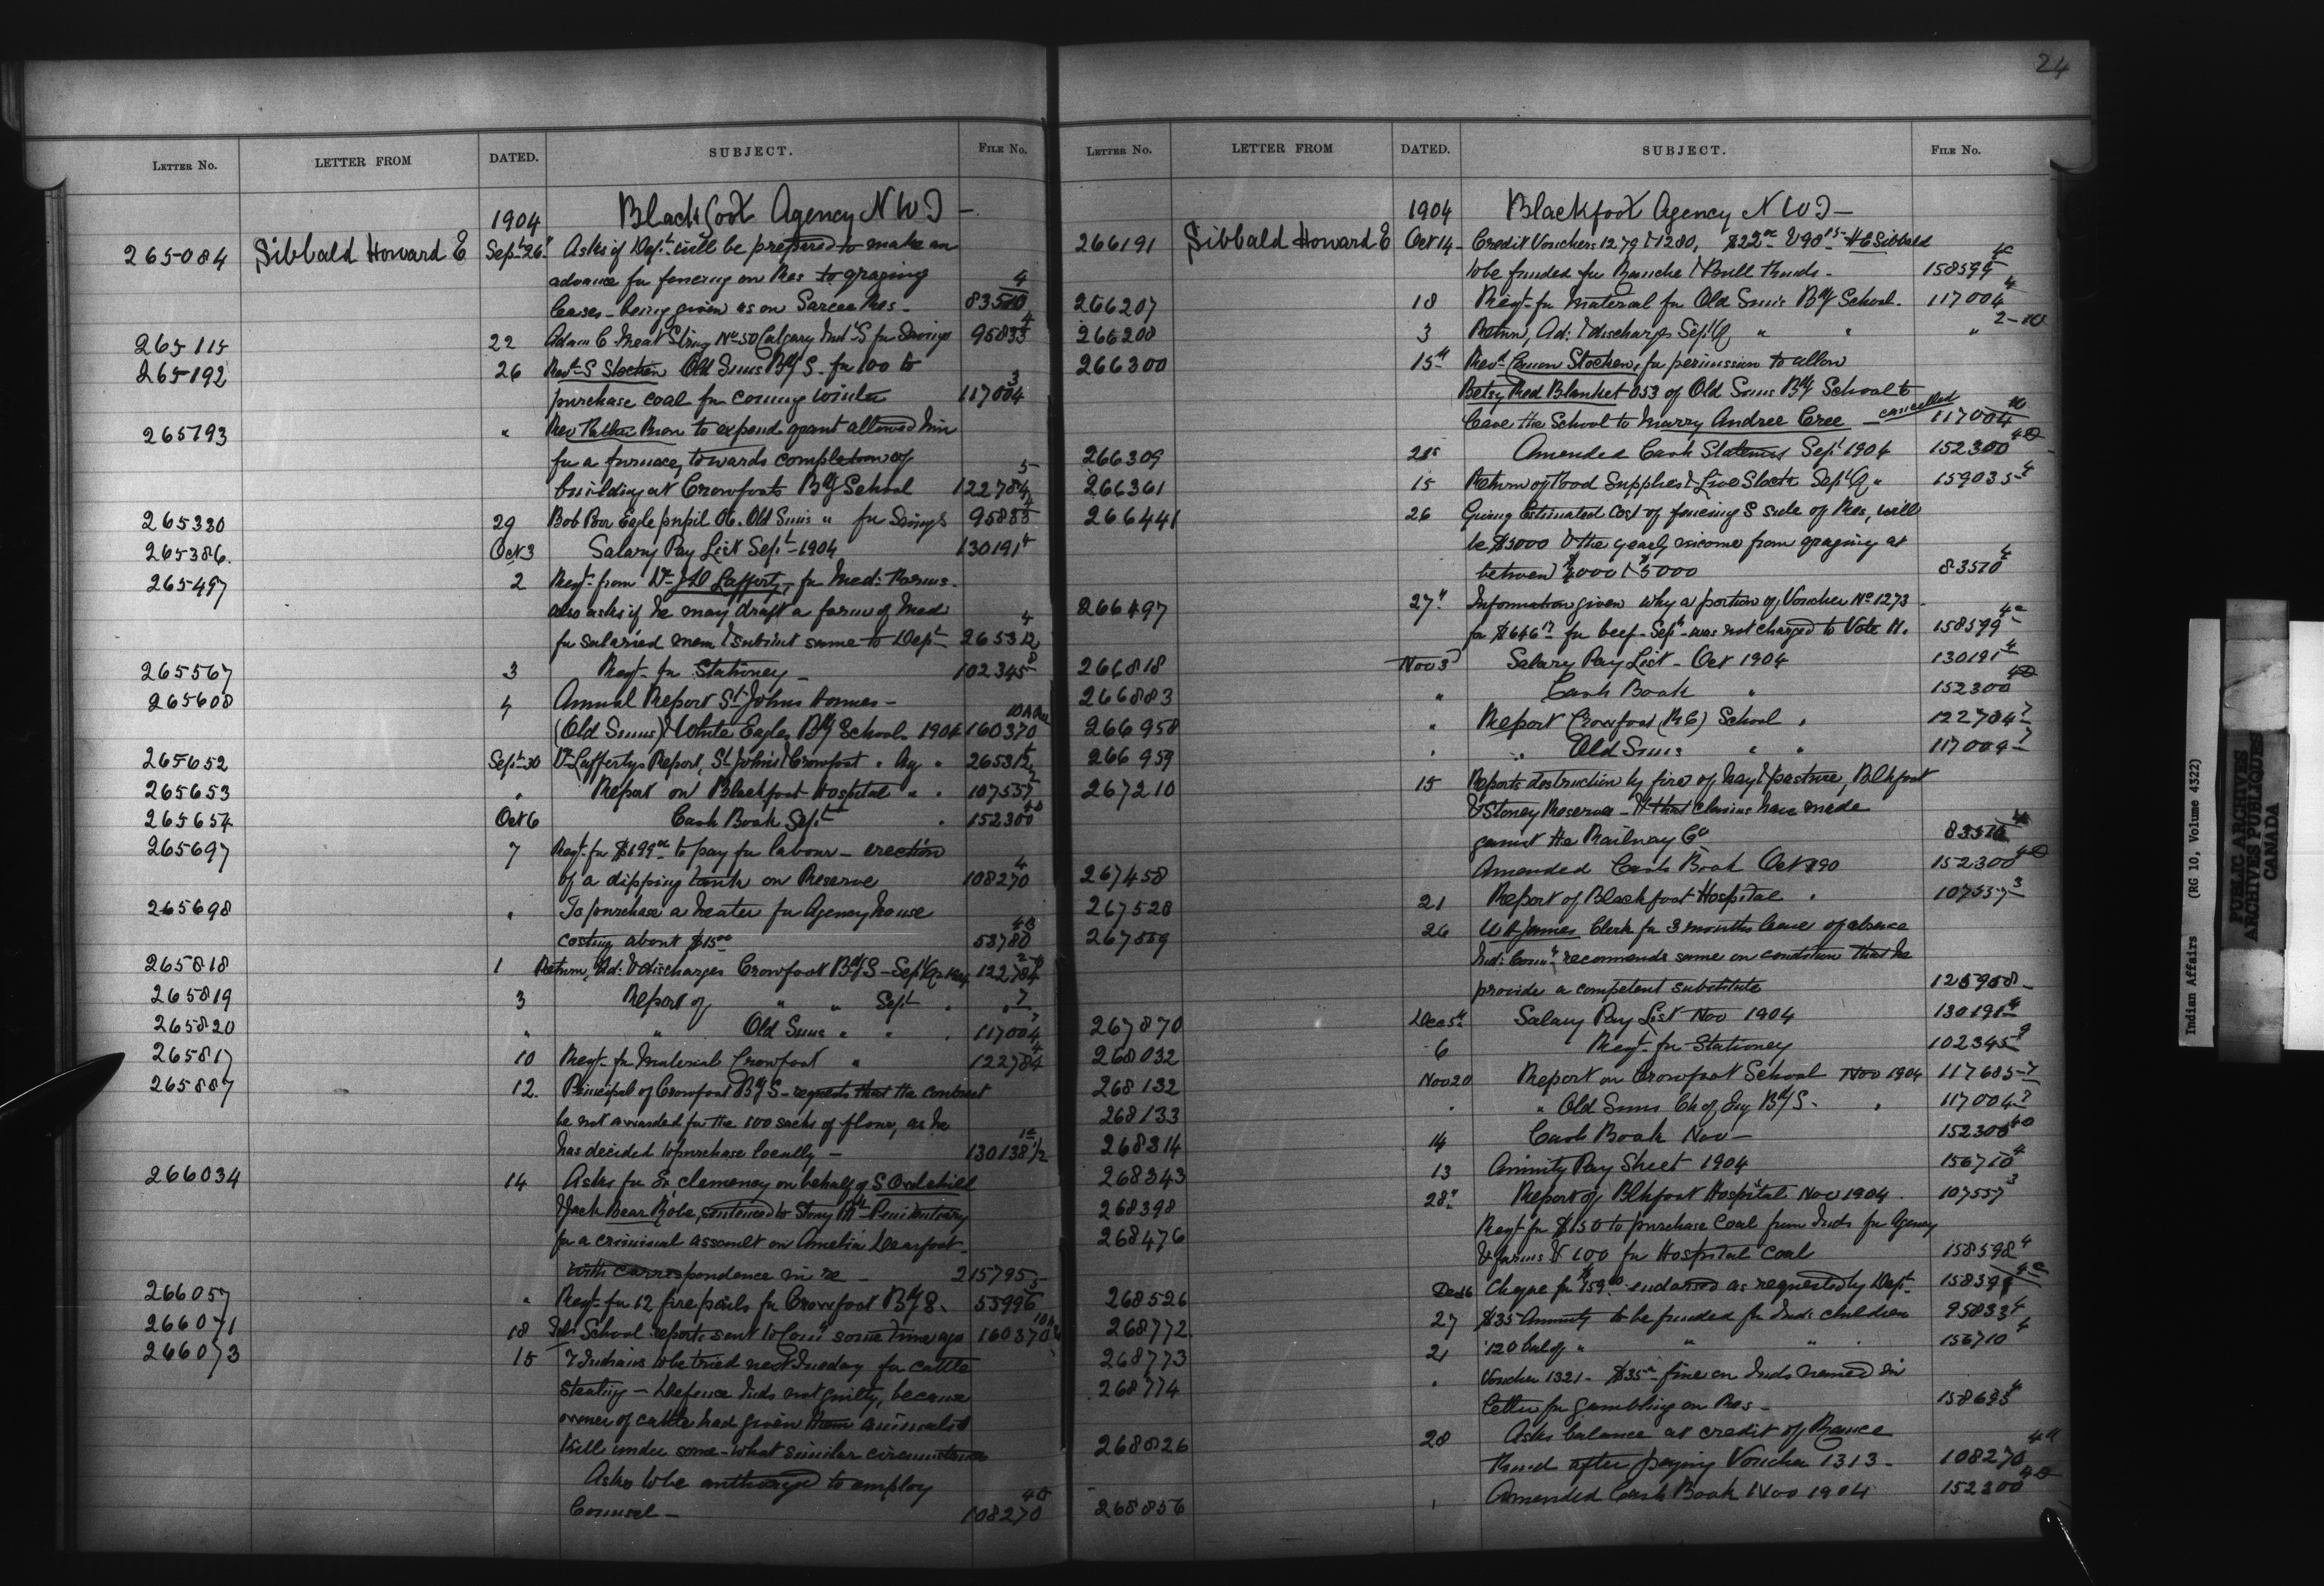 24
LETTER NO. LETTER FROM DATED. SUBJECT. FILE NO.
1904 Blackfoot Agency N W T -
265084 Sibbald Howard E Sept 26 Asks if Dept will be prepared to make an
advance for fencing on Res to grazing 4
leases - being given as on Sarcee Res - 83510
265115 22 Adam C. Meat String No 50 Calgary Ind S for Savings 95833 4
265192 26 Revd S Stocken Old Suns Bdg S. for 100 to
purchase coal for coming winter 117004 3
265193 " Rev Father to expend grant allowed him
for a furnace, towards completion of
building at Crowfoots Bdg School 122784 5
265330 29 Bob Eagle pupil 06. Old Suns " for Savings 95833 4
265386. Oct 3 Salary Pay List Sept - 1904 130191 4
265497 2 Reqt from Dr Lafferty, for Med:
also asks if he may draft a form of Med
for salaried men & submit same to Dept 265312 4
265567 3 Reqt for Stationery - 102345 8
265608 4 Annual Report St Johns Homes -
(Old Suns) & White Eagles Bdg School 1904 160370
265652 Sept 30 Dr Laffertys Report, St Johns & Crowfoot " Ag " 265312
265653 " Report on Blackfoot Hospital " " 107557
265654 Oct 6 Cash Book Sept " 152300
265697 7 Reqt for $199 to pay for labour - erection
of a dipping tank on Reserve 108270 4
265698 " To purchase a heater for Agency house
costing about $15 00 53780
265818 1 Return, Ad: & discharges Crowfoot Bdg S - Sept Qr 122784
265819 3 Report of " " Sept " " 7
265820 " " Old Suns " " " 117004 7
265817 10 Reqt for Material Crowfoot " 122784 4
265887 12. Principal of Crowfoot Bdg S - requests that the contract
be not awarded for the 100 sacks of flour, as he
has decided to purchase locally - 130138 1/2
266034 14 Asks for clemency on behalf of S Owlchild
& Jack Bear Robe, sentenced to Stony Mt Penitentiary
for a criminal assault on Amelia Dearfoot -
with correspondence in re - 215795
266057 " Reqt for 12 fire pails for Crowfoot Bdg S. 55996 5
266071 18 School reports sent to Comr some time ago 160370
266073 15 7 Indians to be tried next Tuesday for cattle
stealing - Defence Inds not guilty, because
owner of cattle had given them animals to
kill under some-what similar circumstances
Asks to be authorized to employ
Counsel - 108270
LETTER NO. LETTER FROM DATED. SUBJECT. FILE NO.
1904 Blackfoot Agency N W T -
266191 Sibbald Howard E Oct 14 - Credit Vouchers 1279 & 1280, $22 & 90 15 H E Sibbald
to be funded for Ranche & Bull Funds - 158599
266207 18 Reqt for Material for Old Suns Bdg School. 117004 4
266208 3 Return, Ad: & discharges Sept Q " " " 2-10
266300 15 Revd Canon Stocken, for permission to allow
Betsy Red Blanket 053 of Old Suns Bdg School to
leave the School to Marry Andree Cree - cancelled 117004 10
266309 21 Amended Cash Statement Sept 1904 152300
266361 15 Return of Food Supplies & Live Stock Sept Q " 159035 4
266441 26 Giving Estimated Cost of fencing S side of Res, will
be $3000 & the yearly income from grazing at
between $4000 & $5000 83510 4
266497 27 Information given why a portion of Voucher No 1273
for $646 17 for beef - Sept was not charged to Vote H. 158599
266818 Nov 3 Salary Pay List - Oct 1904 130191 4
266883 " Cash Book " 152300
266958 " Report Crowfoot (R C) School " 122784 7
266959 " " Old Suns " " 117004 7
267210 15 Reports destruction by fire of hay & pasture, Blkfoot
& Stoney Reserve - & that claims have made
against the Railway Co 83510 4
267458 Amended Cash Book Oct 152300
267528 21 Report of Blackfoot Hospital " 107557 3
267559 26 W H James Clerk for 3 months leave of absence
Ind: Comr recommends same on condition that he
provide a competent substitute
267870 Dec 5 Salary Pay List Nov 1904 130191 4
268032 6 Reqt for Stationery 102345 9
268132 Nov 20 Report on Crowfoot School Nov 1904 117685 7
268133 " " Old Suns Ch of Eng Bdg S. " 117004 7
268314 14 Cash Book Nov - 152300
268343 13 Annuity Pay Sheet 1904 156710 4
268398 28 Report of Blkfoot Hospital Nov 1904. 107557 3
268476 Reqt for $150 to purchase coal from Inds for Agency
& farms & 100 for Hospital coal 158598 4
268526 Dec 16 Cheque for $159 endorsed as requested by Dept
268772 27 $35 Annuity to be funded for Inds children 95833 4
268773 21 120 bal of " " " " 156710 4
268774 " Voucher 1321 - $35 - fine on Inds named in
letter for gambling on Res - 158695 4
268826 28 Asks balance at credit of Rance
Fund after paying Voucher 1313 - 108270
268856 " Amended Cash Book Nov 1904 152300
Indian Affairs (RG 10, Volume 4322)
PUBLIC ARCHIVES
ARCHIVES PUBLIQUES
CANADA